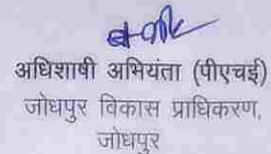 अधिशाषी अभियंता (पीएचई)
जोधपुर विकास प्राधिकरण,
जोधपुर